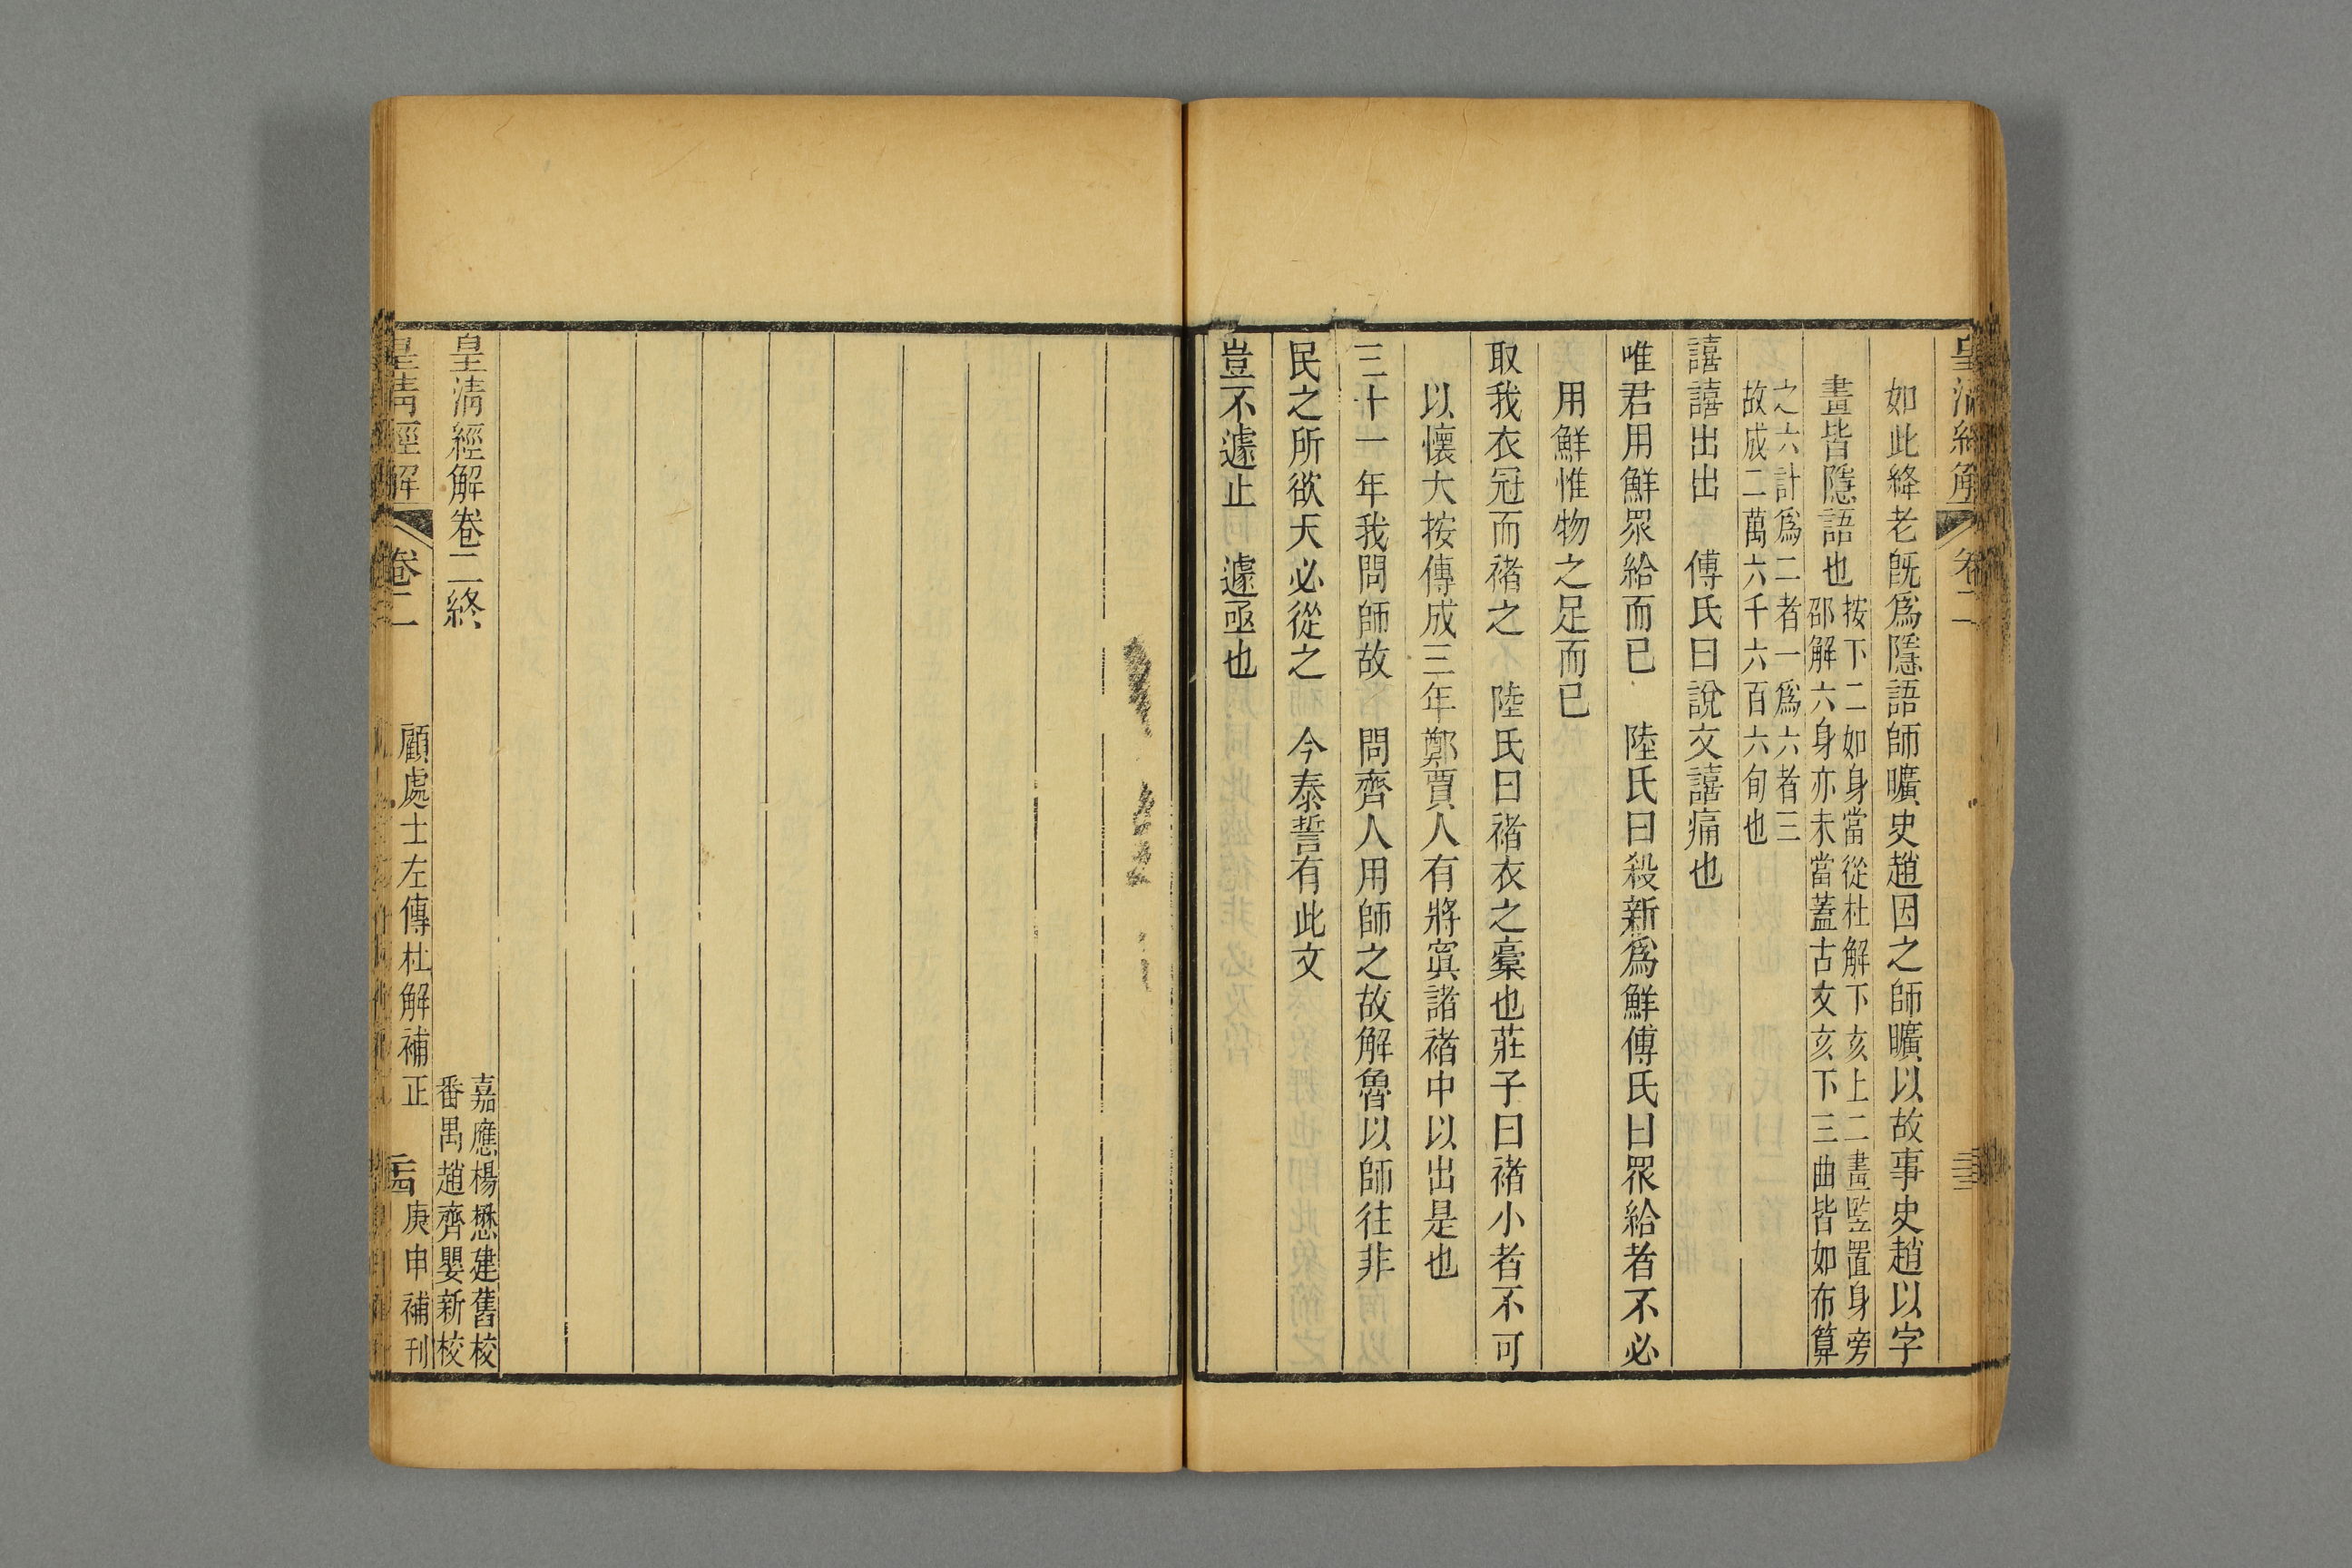 皇清經解 卷二
如此絳老旣爲隱語師曠史趙因之師曠以故事史趙以字
畫皆隱語也
按下二如身當從杜解下亥上二畫監置身旁
邵解六身亦未當蓋古文亥下三曲皆如布算
之六計爲二者一爲六者三
故成二萬六千六百六旬也
譆譆出出 傅氏曰說文譆痛也
唯君用鮮眾給而已 陸氏曰殺新爲鮮傅氏曰眾給者不必
用鮮惟物之足而已
取我衣冠而褚之 陸氏曰褚衣之櫜也莊子曰褚小者不可
以懷大按傳成三年鄭賈人有將寘諸褚中以出是也
三十一年我問師故 問齊人用師之故解魯以師往非
民之所欲天必從之 今泰誓有此文
豈不遽止 遽亟也
皇清經解卷二終
嘉應楊懋建舊校
番禺趙齊嬰新校
皇清經解 卷二 顧處士左傳杜解補正 庚申補刊